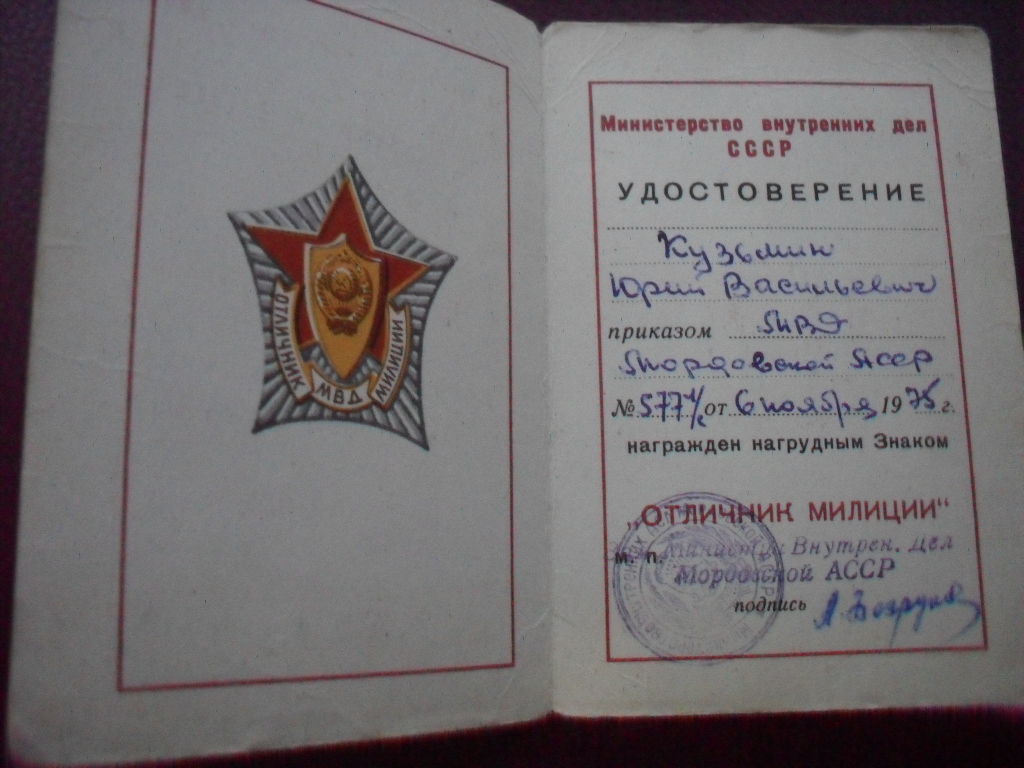 ОТЛИЧНИК
МВД
МИЛИЦИИ
Министерство внутренних дел
СССР
УДОСТОВЕРЕНИЕ
Кузьмин
Юрий Васильевич
приказом МВД
Мордовской АССР
№ 577 от 6 ноября 1975 г.
награжден нагрудным Знаком
„ОТЛИЧНИК МИЛИЦИИ“
м. п. Министр Внутрен. дел
Мордовской АССР
подпись